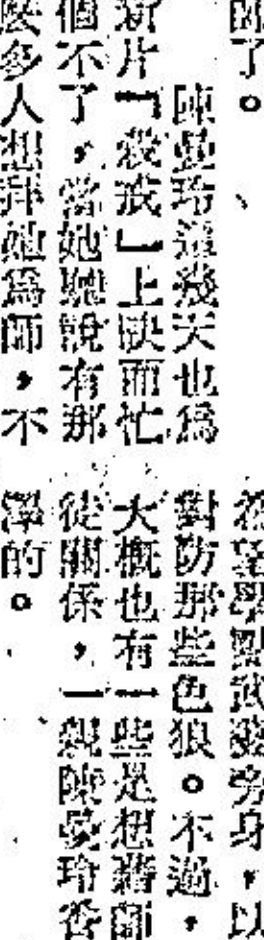 師了。
陳曼玲這幾天也爲
新片「殺戒」上映而忙
個不了，當她聽說有那
麽多人想拜她爲師，不
望學點武藝旁身，以
對防那些色狼。不過，
大概也有一些是想藉師
徒關係，一親陳曼玲香
澤的。